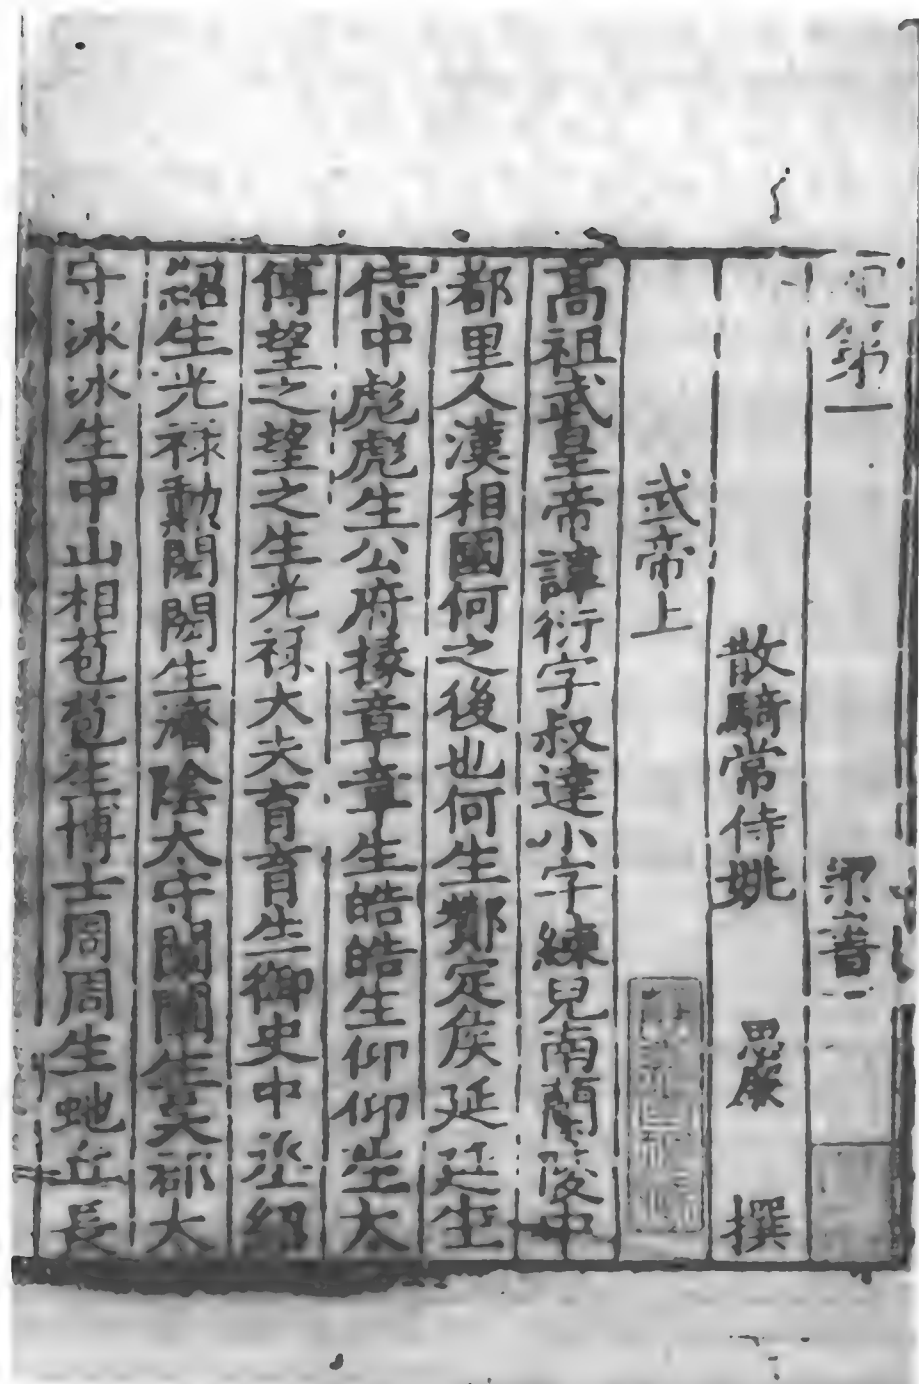 紀第一 梁書一
散騎常侍姚 思廉 撰
武帝上
高祖武皇帝諱衍字叔達小字練兒南蘭陵中
都里人漢相國何之後也何生酇定侯延延生
侍中彪彪生公府掾章章生皓皓生仰仰生太
傅望之望之生光禄大夫育育生御史中丞紹
紹生光禄勳閎閎生濟陰太守闡闡生吴郡太
守冰冰生中山相苞苞生博士周周生虵丘長